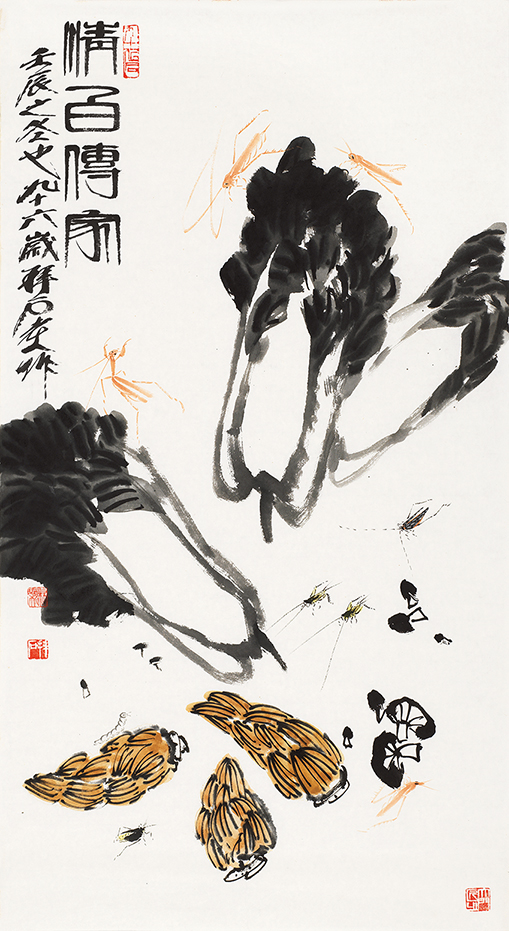 清白傳家
壬辰之冬也九十六歲拜石老作